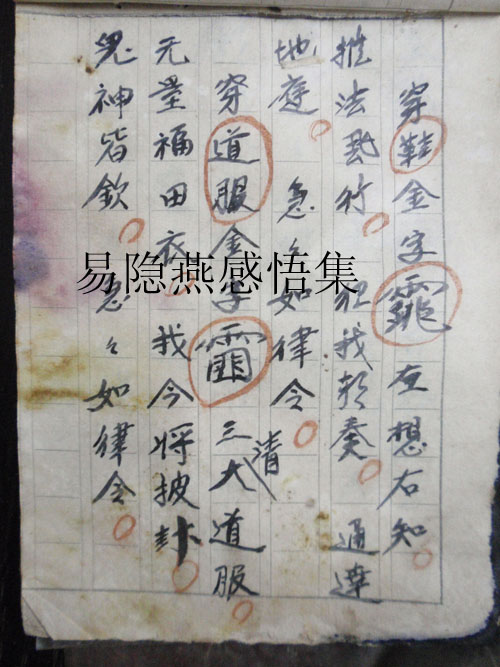 穿鞋金字 在想右知
推法 行 我 奏 通達
地庭 急々如律令
穿道服金字 三大清道服
元量福田衣 我今将披卦
鬼神皆欽 急々如律令
易隐燕感悟集